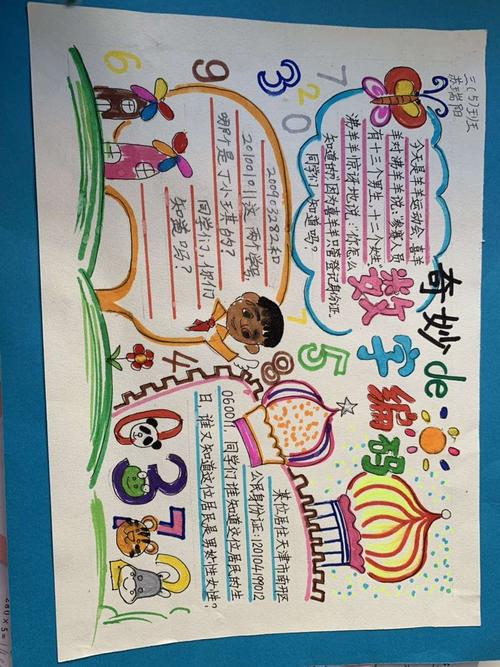 三(5)班
奇妙de
数字编码
今天是羊羊运动会,喜羊
羊对沸羊羊说:"参赛人员
有十三个男生,十二个女生"
沸羊羊惊讶地说:"你怎么
知道的"因为喜羊羊只看登记身份证.
同学们,知道吗?
200903282和
20100101这两个学号
哪个是丁小琪的?
同学们,你们
知道吗?
某位居住天津市南开区
公民身份证:120104199012
060011,同学们谁知道这位居民的生
日,谁又知道这位居民是男性女性?
6
9
3
2
0
7
7
5
8
4
0
3
7
0